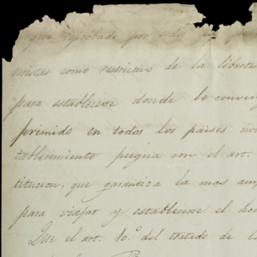 que aprobado por
mistas como restrictivo de la libertad
para establecerse donde lo
primido en todos los países
tablecimiento pugna con el art.
titucion, que garantiza la mas am
para viajar y establecerse el ho
Que el art. 10.º del tratado de